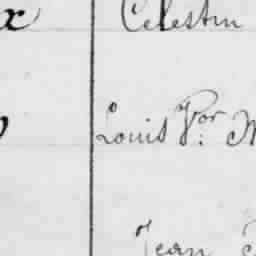 x Celestin
Louis Vor. M
Jean